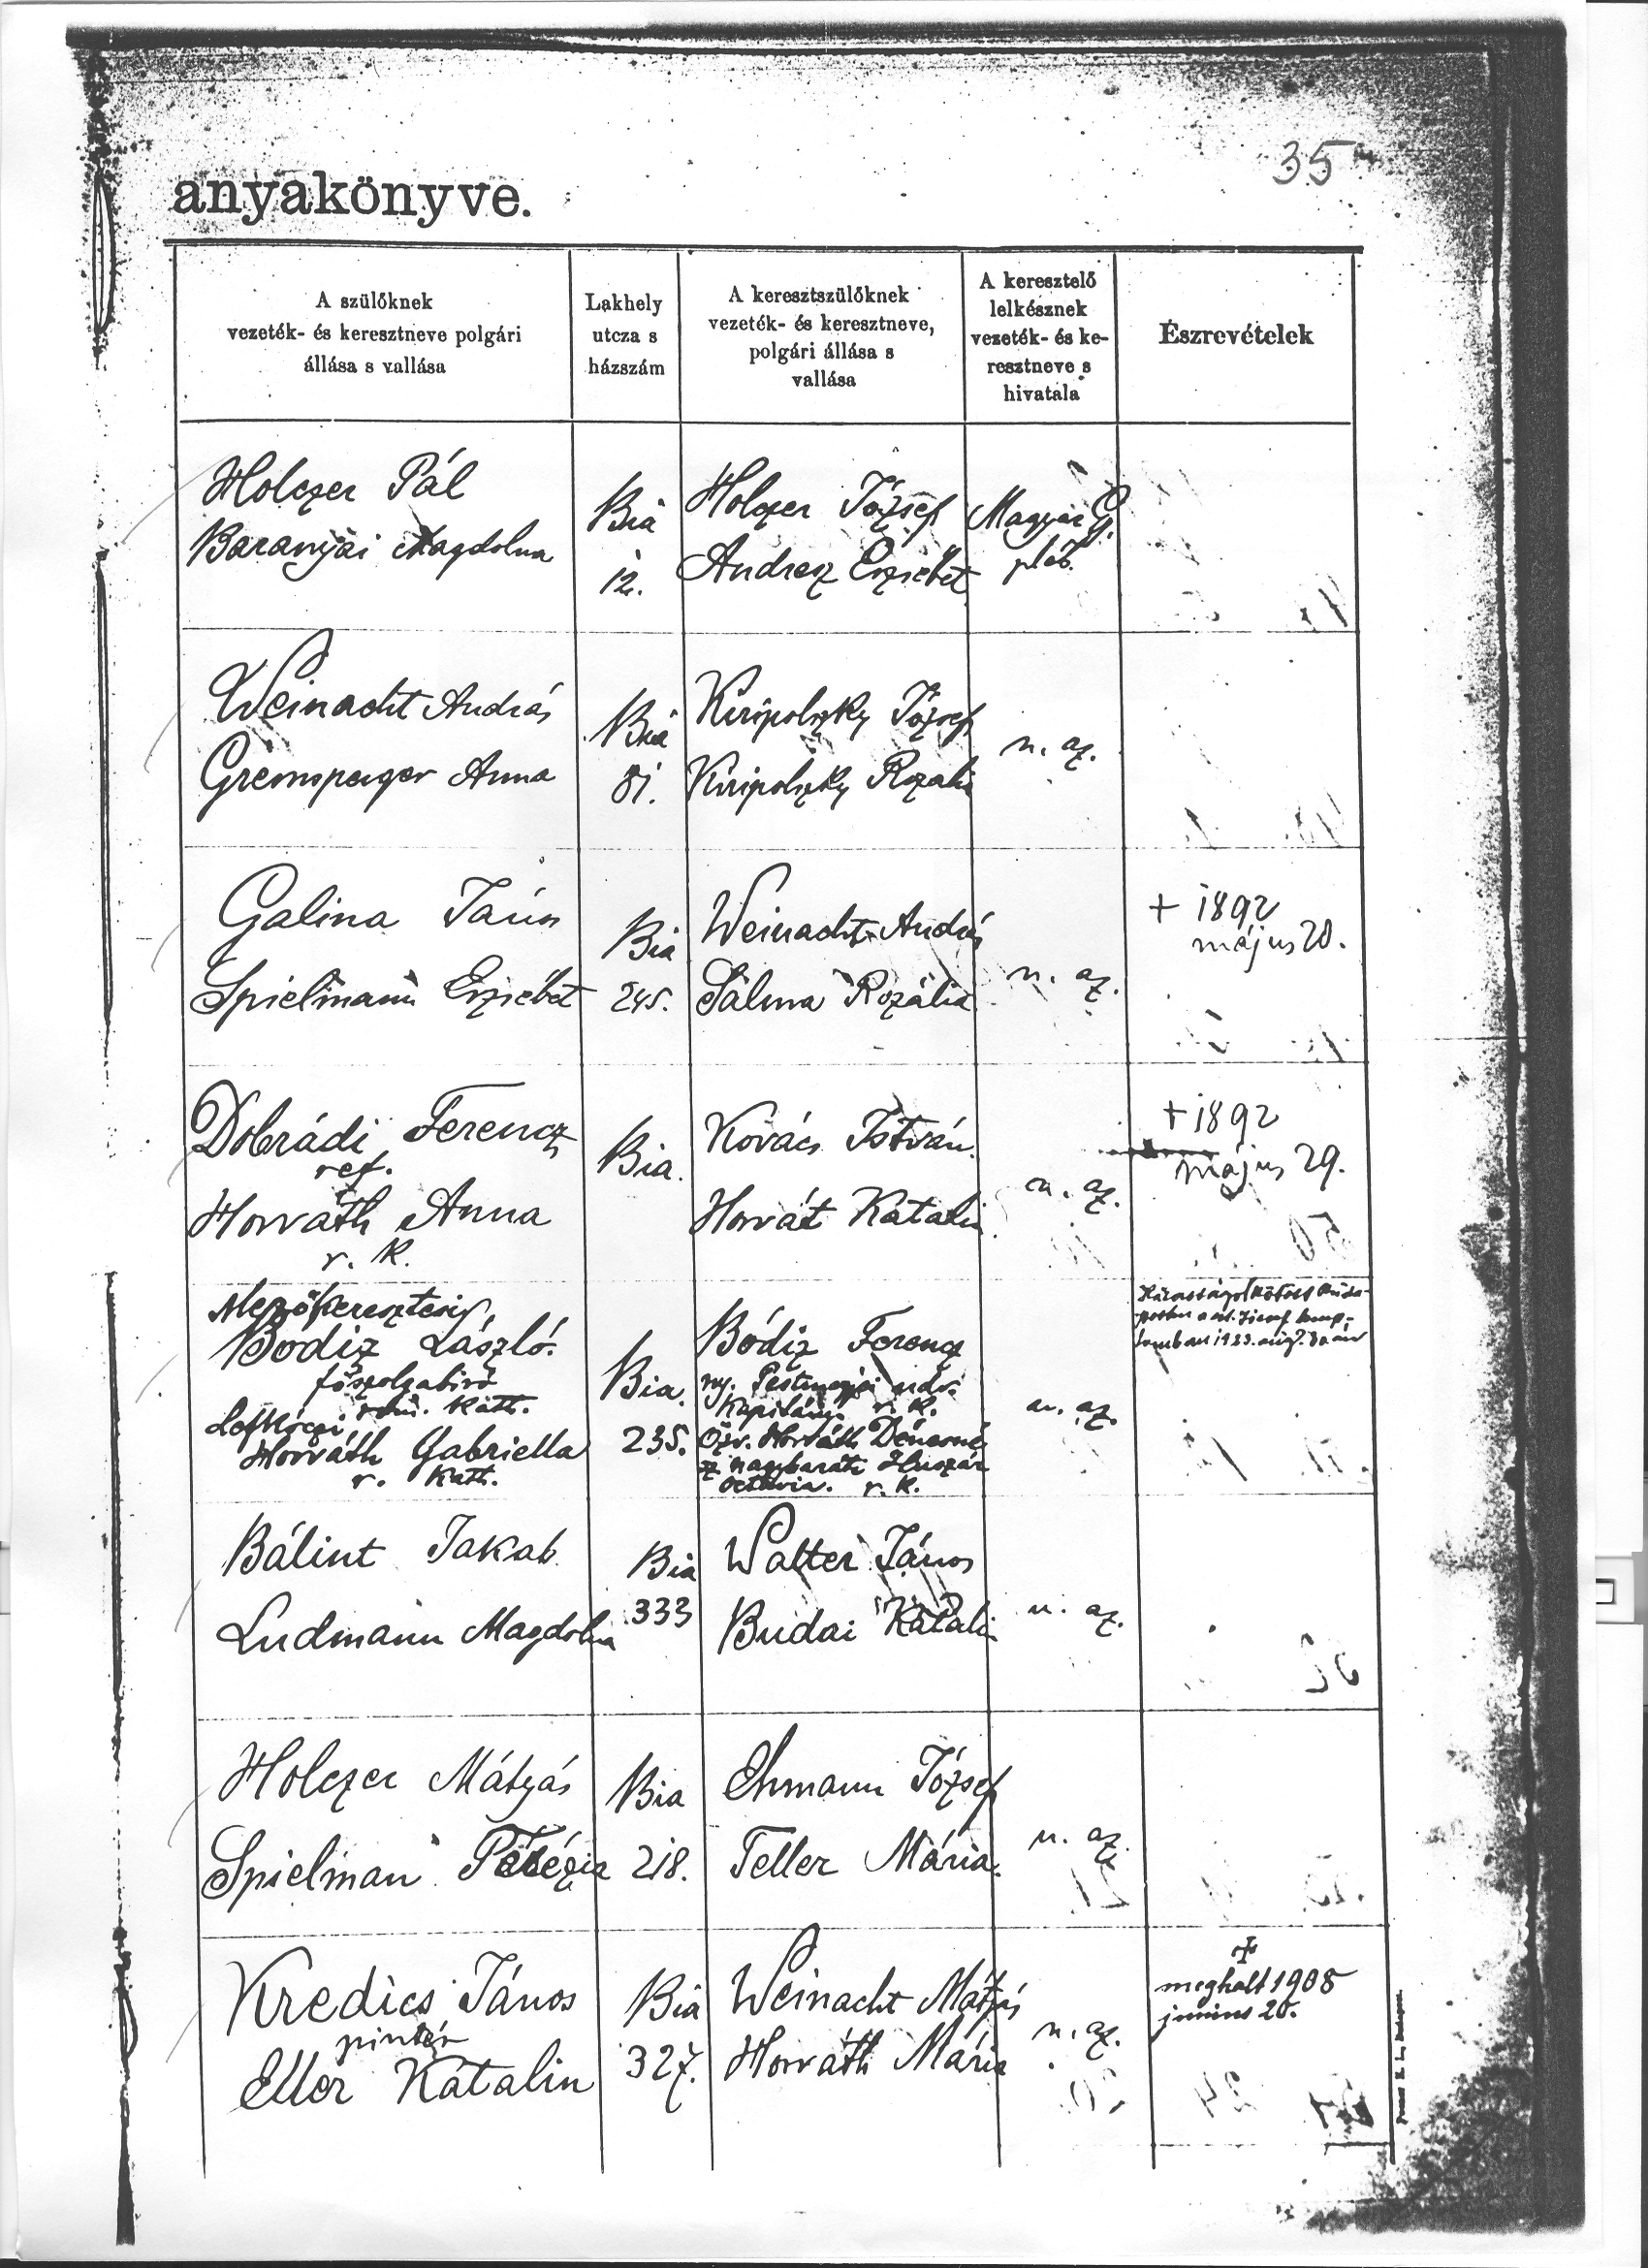 35
anyakönyve.
A szülőknek
vezeték- és keresztneve polgári
állása s vallása
Lakhely
utcza s
házszám
A keresztszülőknek
vezeték- és keresztneve,
polgári állása s
vallása
A keresztelő
lelkésznek
vezeték- és ke-
resztneve s
hivatala
Észrevételek
Holczer Pál
Baranyai Magdolna
Bia
12.
Holczer József
Andresz Erzsébet
Magyar G.
pléb.
Weinacht András
Gremsperger Anna
Bia
81.
Kiripolszky József
Kiripolszky Rozali
u. az.
Galina János
Spielmann Erzsébet
Bia
245.
Weinacht András
Salma Rozália
u. az.
+ 1892
május 20.
Dobrádi Ferencz
ref.
Horváth Anna
r. k.
Bia.
Kovács István.
Horvát Katalin
u. az.
+ 1892
május 29.
Mezőkeresztesi
Bódiz László.
főszolgabíró
róm. kath.
Lefkóczi
Horváth Gabriella
r. kath.
Bia.
235.
Bódiz Ferencz
ny. Pestmegyei udv.
kapitány r. k.
Özv. Horváth Dénesné
sz nagybaráti Huszár
Octavia. r. k.
u. az.
Házasságot kötött Buda-
pesten a szt. József temp-
lomban 1923. aug.
Bálint Jakab
Ludmann Magdolna
Bia
333
Walter János
Budai Katalin
u. az.
Holczer Mátyás
Spielman Terézia
Bia
218.
Ehmann József
Teller Mária.
u. az.
Kredics János
pintér
Eller Katalin
Bia
327.
Weinacht Mátyás
Horváth Mária
u. az.
+
meghalt 1908
junius 20.